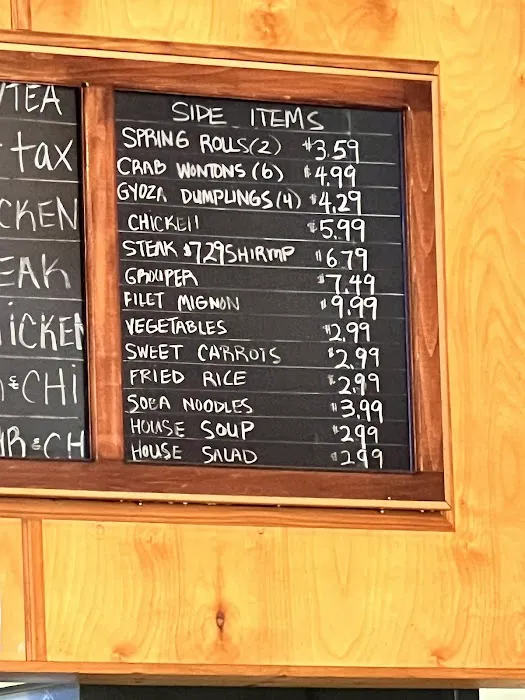 TEA
tax
CKEN
EAK
ICKEN
& CHI
& CH
SIDE ITEMS
SPRING ROLLS(2) $3.59
CRAB WONTONS (6) $4.99
GYOZA DUMPLINGS (4) $4.29
CHICKEN $5.99
STEAK $7.29 SHIRMP $6.79
GROUPER $7.49
FILET MIGNON $9.99
VEGETABLES $2.99
SWEET CARROTS $2.99
FRIED RICE $2.99
SOBA NOODLES $3.99
HOUSE SOUP $2.99
HOUSE SALAD $2.99